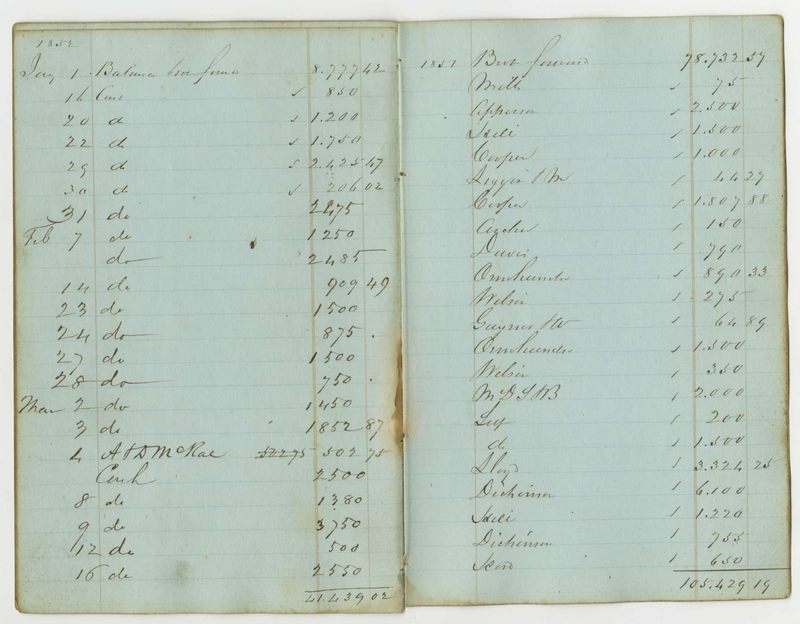 1852
Jany 1 Balance bro forwd 8.777 42
16 Cash 850
20 do 1.200
22 do 1.750
29 do 2.425 47
30 do 206 02
31 do 2475
Feb 7 do 1250
do 2485
14 do 909 49
23 do 1500
24 do 875
27 do 1500
28 do 750
Mar 2 do 1450
3 do 1852 87
4 A & D McRae 502 75
Cash 2500
8 do 1380
9 do 3750
12 do 500
16 do 2550
41.439 02
1851 Brot forward 78.732 57
Mills 75
Apperson 2.500
Hill 1.500
Cooper 1.000
44 27
Cooper 1.807 88
Archer 150
Davis 790
Omohundro 890 33
Wilson 275
64 89
Omohundro 1.500
Wilson 350
2.000
200
do 1.500
Lloyd 3.324 25
Dickinson 6.100
Hill 1.220
Dickinson 755
650
105.429 19